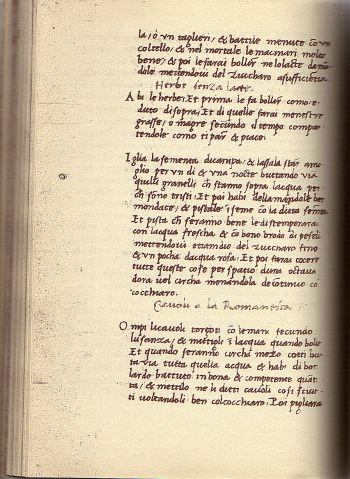 la, o un taglieri, & battile menute cõ un
coltello, & nel mortale le macinari molto
bene, & poi le farai boller nelo lacte damã
dole mettendovi del Zuccharo asufficientia
Herbe senza latte.
A bi le herbe, Et prima le fa boller como e
duto disopra, Et di quelle farai menestre
grasse, o magre secundo il tempo compar
tendole como ti par & piace.
Iglia la somenta di canipa, & lassala star amo
glio per un di & una nocte buttando via
quilli granelli chi stanno sopra lacqua per
chi sono tristi. Et poi habi dellamãdole ben
mondate, & pistale insieme cõ la ditta semẽta
Et pista chi seranno bene le distemperarai
con lacqua frescha, & cõ bono brodo di peselli
mettendovi etiamdio del zuccharo fino
& un pocha dacqua rosa. Et poi farai cocere
tutte queste cose per spatio duna octava
dora vel circha menandola decontinuo col
cocchiaro.
Cavoli a la Romanesca.
O mpi li cavoli torzuti cõ le mani secundo
lusanza, & mettoli ĩ lacqua quando bolle
Et quando seranno circha mezo cotti but
ta via tutta quella acqua & habi di bon
lardo battuto in bona & competente quãti
ta, & mettilo ne li ditti cavoli cosi sciut
ti voltandoli ben col cocchiaro. Poi pigliarai